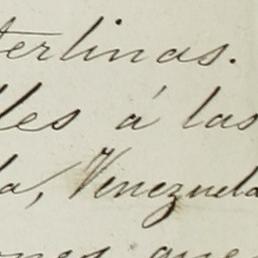 terlinas.
les á las
la, Venezuela
ones que